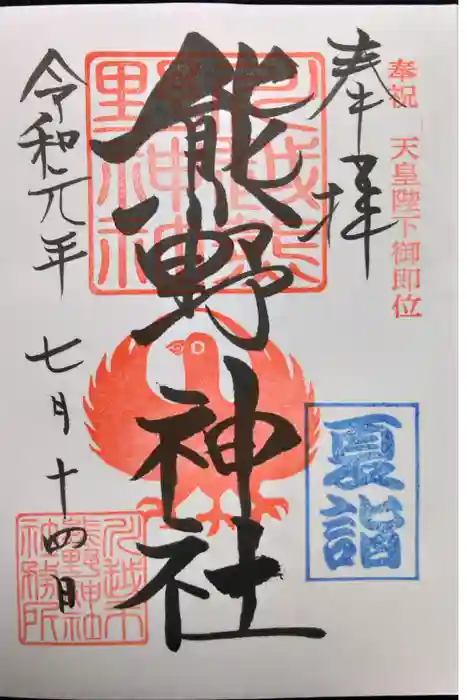 奉祝 天皇陛下御即位
奉拝
夏詣
熊野神社
川越熊野神社
令和元年 七月十四日
川越市熊野神社神務所